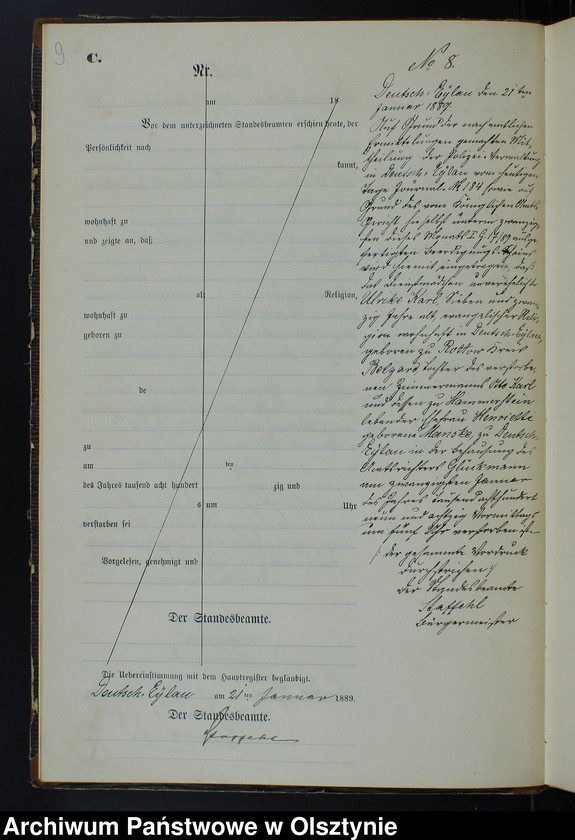 9
C.
Nr.
am 18
Vor dem unterzeichneten Standesbeamten erschien heute, der
Persönlichkeit nach
kannt,
wohnhaft zu
und zeigte an, daß
alt Religion,
wohnhaft zu
geboren zu
de
zu
am ten
des Jahres tausend acht hundert zig und
s um Uhr
verstorben sei
Vorgelesen, genehmigt und
Der Standesbeamte.
Die Uebereinstimmung mit dem Hauptregister beglaubigt.
Deutsch. Eylau am 21ten Januar 1889.
Der Standesbeamte.
Staffehl
No 8.
Deutsch. Eylau den 21ten
Januar 1889.
Auf Grund der nach amtlichen
Ermittelungen gemachten Mit-
theilung der Polizei-Verwaltung
in Deutsch. Eylau vom heutigen
Tage Journal. No 184 sowie auf
Grund des vom Königlichen Amts
Gericht hieselbst unterm zwanzig-
sten dieses Monats ausge-
fertigten Beerdigungs-Scheins
wird hiermit eingetragen, daß
das Dienstmädchen unverehelichte
Ulrike Karl, Sieben und zwan-
zig Jahre alt, evangelischer Reli-
gion wohnhaft in Deutsch. Eylau,
geboren zu Rottow Kreis
Belgard, Tochter des verstorbe-
nen Zimmermanns Otto Karl
und dessen zu Hammerstein
lebender Ehefrau Henriette
geborene Manske, zu Deutsch.
Eylau in der Behausung des
Amtsrichters Glückmann
am zwanzigsten Januar
des Jahres tausend achthundert
neun und achtzig Vormittags
um fünf Uhr verstorben ist.
/: der gesammte Vordruck
durchstrichen
Der Standesbeamte
Staffehl
Bürgermeister
Archiwum Państwowe w Olsztynie